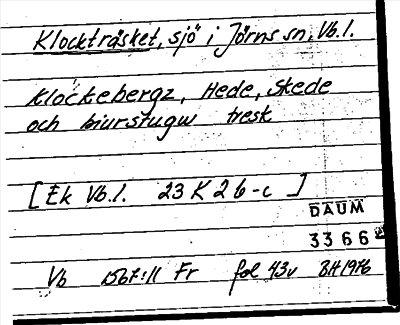 Klockträsket, sjö i Jörns sn, Vb.l.
klöckebergz, Hede, Skede
och biurstugw tresk
[Ek Vb.l. 23 K 2 b-c ]
DAUM
3366
Vb 1567:11 Fr fol 43v BH 1976